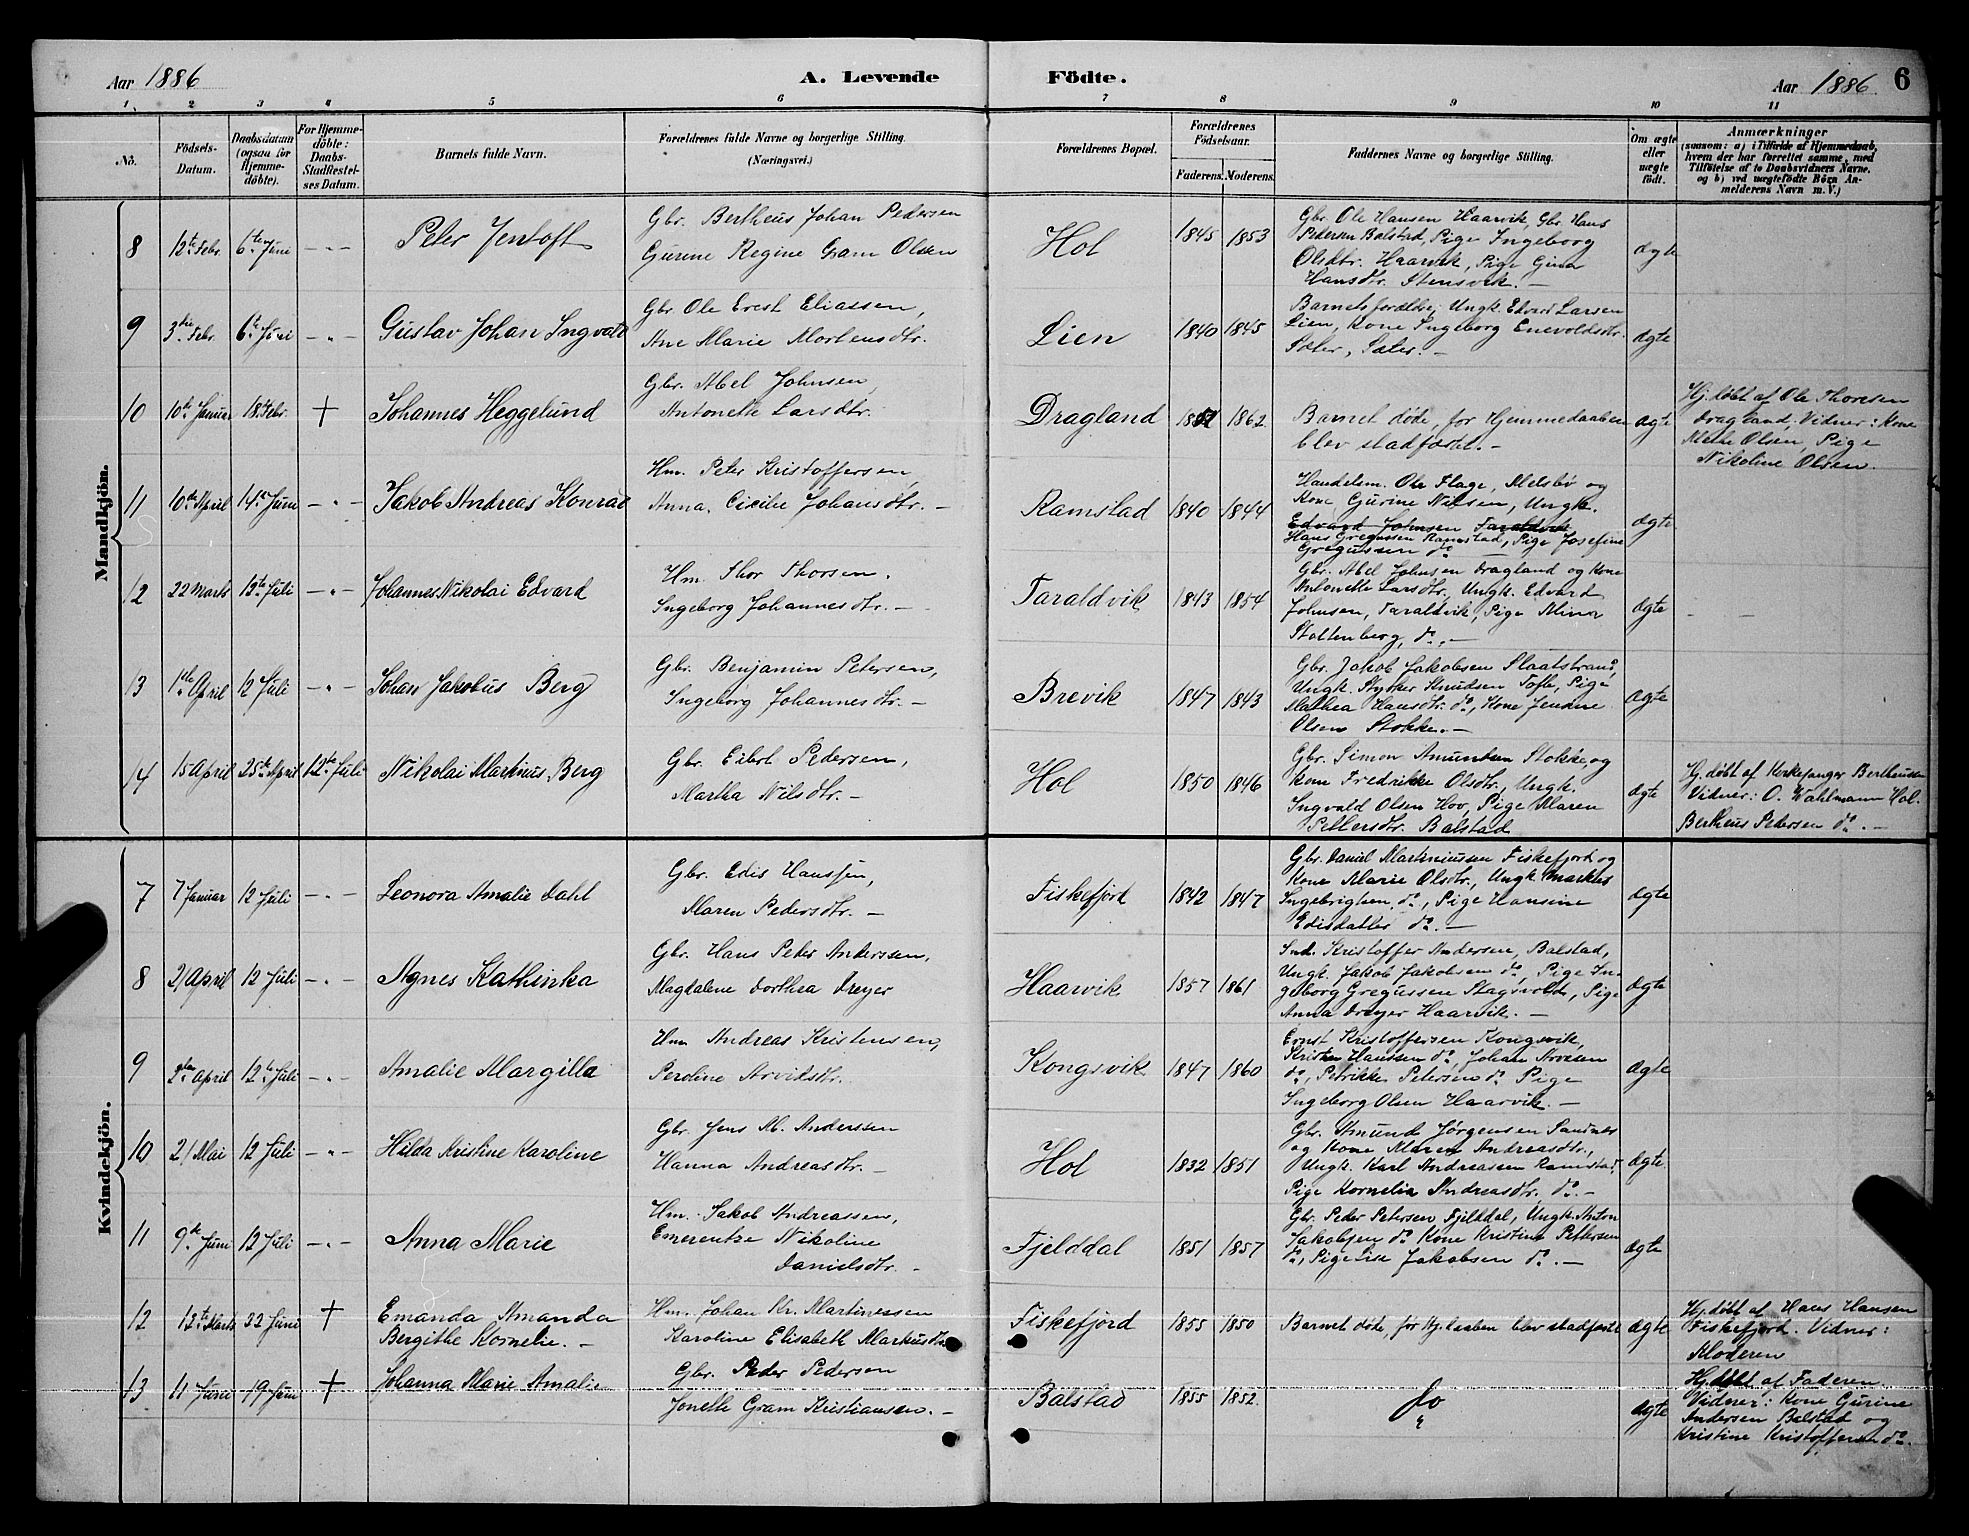 Aar 1886
A. Levende Födte.
Aar 1886
6
1. 2 3 4 5 6 7 8 9 10 11
No.
Födsels-
Datum.
Daabsdatum
(ogsaa for
Hjemme-
döbte).
For Hjemme-
döbte:
Daabs-
Stadfæstel-
ses Datum.
Barnets fulde Navn.
Forældrenes fulde Navne og borgerlige Stilling.
(Næringsvei.)
Forældrenes Bopæl.
Forældrenes
Födselsaar.
Faderens. Moderens.
Faddernes Navne og borgerlige Stilling.
Om ægte
eller
uægte
födt.
Anmærkninger
(saasom: a) i Tilfælde af Hjemmedaab,
hvem der har forrettet samme, med
Tilföielse af to Daabsvidners Navne.
og b) ved uægtefödte Börn An-
melderens Navn m. V.)
Mandkjön.
8 12te Febr. 6te Juni -"- Peter Jentoft
Gbr. Bertheus Johan Pedersen
Gurine Regine Gram Olsen
Hol 1845 1853
Gbr. Ole Hansen Haarvik, Gbr. Hans
Pedersen Balstad, Pige Ingeborg
Olsdtr. Haarvik, Pige Gina
Hansdtr. Stensvik. -
ægte
9 3die Febr. 6te Juni -"- Gustav Johan Ingvald
Gbr. Ole Erest Eliassen,
Ane Marie Mortensdtr.
Lien 1840 1845
Barnets forældre, Ungk. Edvard Larsen
Lien, Kone Ingeborg Enevoldsdtr.
Sæter, Sæter. -
ægte
10 10de Januar 18. Febr. + Johannes Heggelund
Gbr. Abel Johnsen,
Antonette Larsdtr.
Dragland 1862
Barnet døde, før Hjemmedaaben
blev stadfæstet. -
ægte
Hj. døbt af Ole Thoresen
Dragland. Vidner: Kone
Mette Olsen, Pige
Nikoline Olsen.
11 10de April 14de Juni -"- Jakob Andreas Konrad
Hm. Peter Kristoffersen,
Anna, Cicilie Johansdtr. -
Ramstad 1840 1844
Handelsm. Ole Flage, Melsbø og
Kone Gurine Nilsen, Ungk.
Edvard Johnsen Taraldvik
Hans Gregussen Ramstad, Pige Josefine
Gregussen do
ægte
12 22 Marts 12te Juli -"- Johannes Nikolai Edvard
Hm. Thor Thorsen.
Ingeborg Johannesdtr. -
Taraldvik 1843 1854
Gbr. Abel Johnsen Dragland og Kone
Antonette Larsdtr, Ungk. Edvard
Johnsen, Taraldvik, Pige Mina
Stoltenberg, do. -
ægte
13 1ste April 12 Juli -"- Johan Jakobus Berg
Gbr. Benjamin Petersen,
Ingeborg Johannesdtr. -
Brevik 1847 1843
Gbr. Jakob Jakobsen Slaatstrand,
Ungk. Stytker Knudsen Tofte, Pige
Mathea Hansdtr. do, Kone Jensine
Olsen Stokke. -
ægte
14 15 April 25de April 12te Juli Nikolai Martinus Berg
Gbr. Eilert Pedersen,
Martha Nilsdtr. -
Hol 1850 1846
Gbr. Simon Amundsen Stokke og
Kone Fredrikke Olsdtr, Ungk.
Ingvald Olsen Hov, Pige Maren
Pettersdtr. Balstad
ægte
Hj. døbt af Kirkesanger Bertheussen
Vidner: O. Wahlmann Hol.
Bertheus Pedersen do. -
Kvindekjön.
7 7 Januar 12 Juli -"- Leonora Amalie Dahl
Gbr. Edis Hanssen,
Maren Pedersdtr. -
Fiskefjord 1842 1847
Gbr. Daniel Martiniussen Fiskefjord og
Kone Marie Olsdtr, Ungk Markus
Ingebrigtsen do, Pige Hansine
Edisdatter do. -
ægte
8 21 April 12 Juli -"- Agnes Kathinka
Gbr. Hans Peder Anderssen,
Magdalene Dorthea Dreyer
Haarvik 1857 1861
Ind. Kristoffer Andersen, Balstad,
Ungk. Jakob Jakobsen do, Pige In-
geborg Gregussen Stagsvold, Pige
Anna Dreyer Haarvik. -
ægte
9 2den April 12te Juli -"- Amalie Margilla
Hm Andreas Kristensen,
Peroline Arvidsdtr.
Kongsvik 1847 1860
Ernst Kristoffersen Kongsvik,
Kristen Hanssen do, Johan Arvesen
do, Petrikke Petersen do Pige
Ingeborg Olsen Haarvik. -
ægte
10 21 Mai 12 Juli -"- Hilda Kristine Karoline
Gbr. Jens M. Anderssen
Hanna Andreasdtr. -
Hol 1832 1851
Gbr. Amund Jørgensen Sandnes
og Kone Maren Andreasdtr.,
Ungk. Karl Andreassen Ramstad,
Pige Kornelia Andreasdtr. do. -
ægte
11 9de Juni 12 Juli -"- Anna Marie
Hm. Jakob Andreassen,
Emerentze Nikoline
Danielsdtr. -
Fjelddal 1851 1857
Gbr. Peder Petersen Fjelddal, Ungk. Anton
Jakobsen do Kone Kristine Pettersen
do, Pige Lise Jakobsen do. -
ægte
12 12te Marts 22 Juni + Emanda Amanda
Bergithe Kornelie. -
Hm. Johan Kr. Martinessen
Karoline Elisabeth Markusdtr
Fiskefjord 1855 1850
Barnet døde, før Hj. daaben blev stadfæstet
ægte
Hj. døbt af Hans Hansen
Fiskefjord. Vidner:
Moderen
13 11 Juni 19 Juni + Johanna Marie Amalie
Gbr. Peder Pedersen
Jonette Gram Kristiansen. -
Balstad 1855 1852.
do
"
ægte
Hj. døbt af Faderen.
Vidner: Kone Gurine
Andersen Balstad og
Kristine Kristoffersen do.